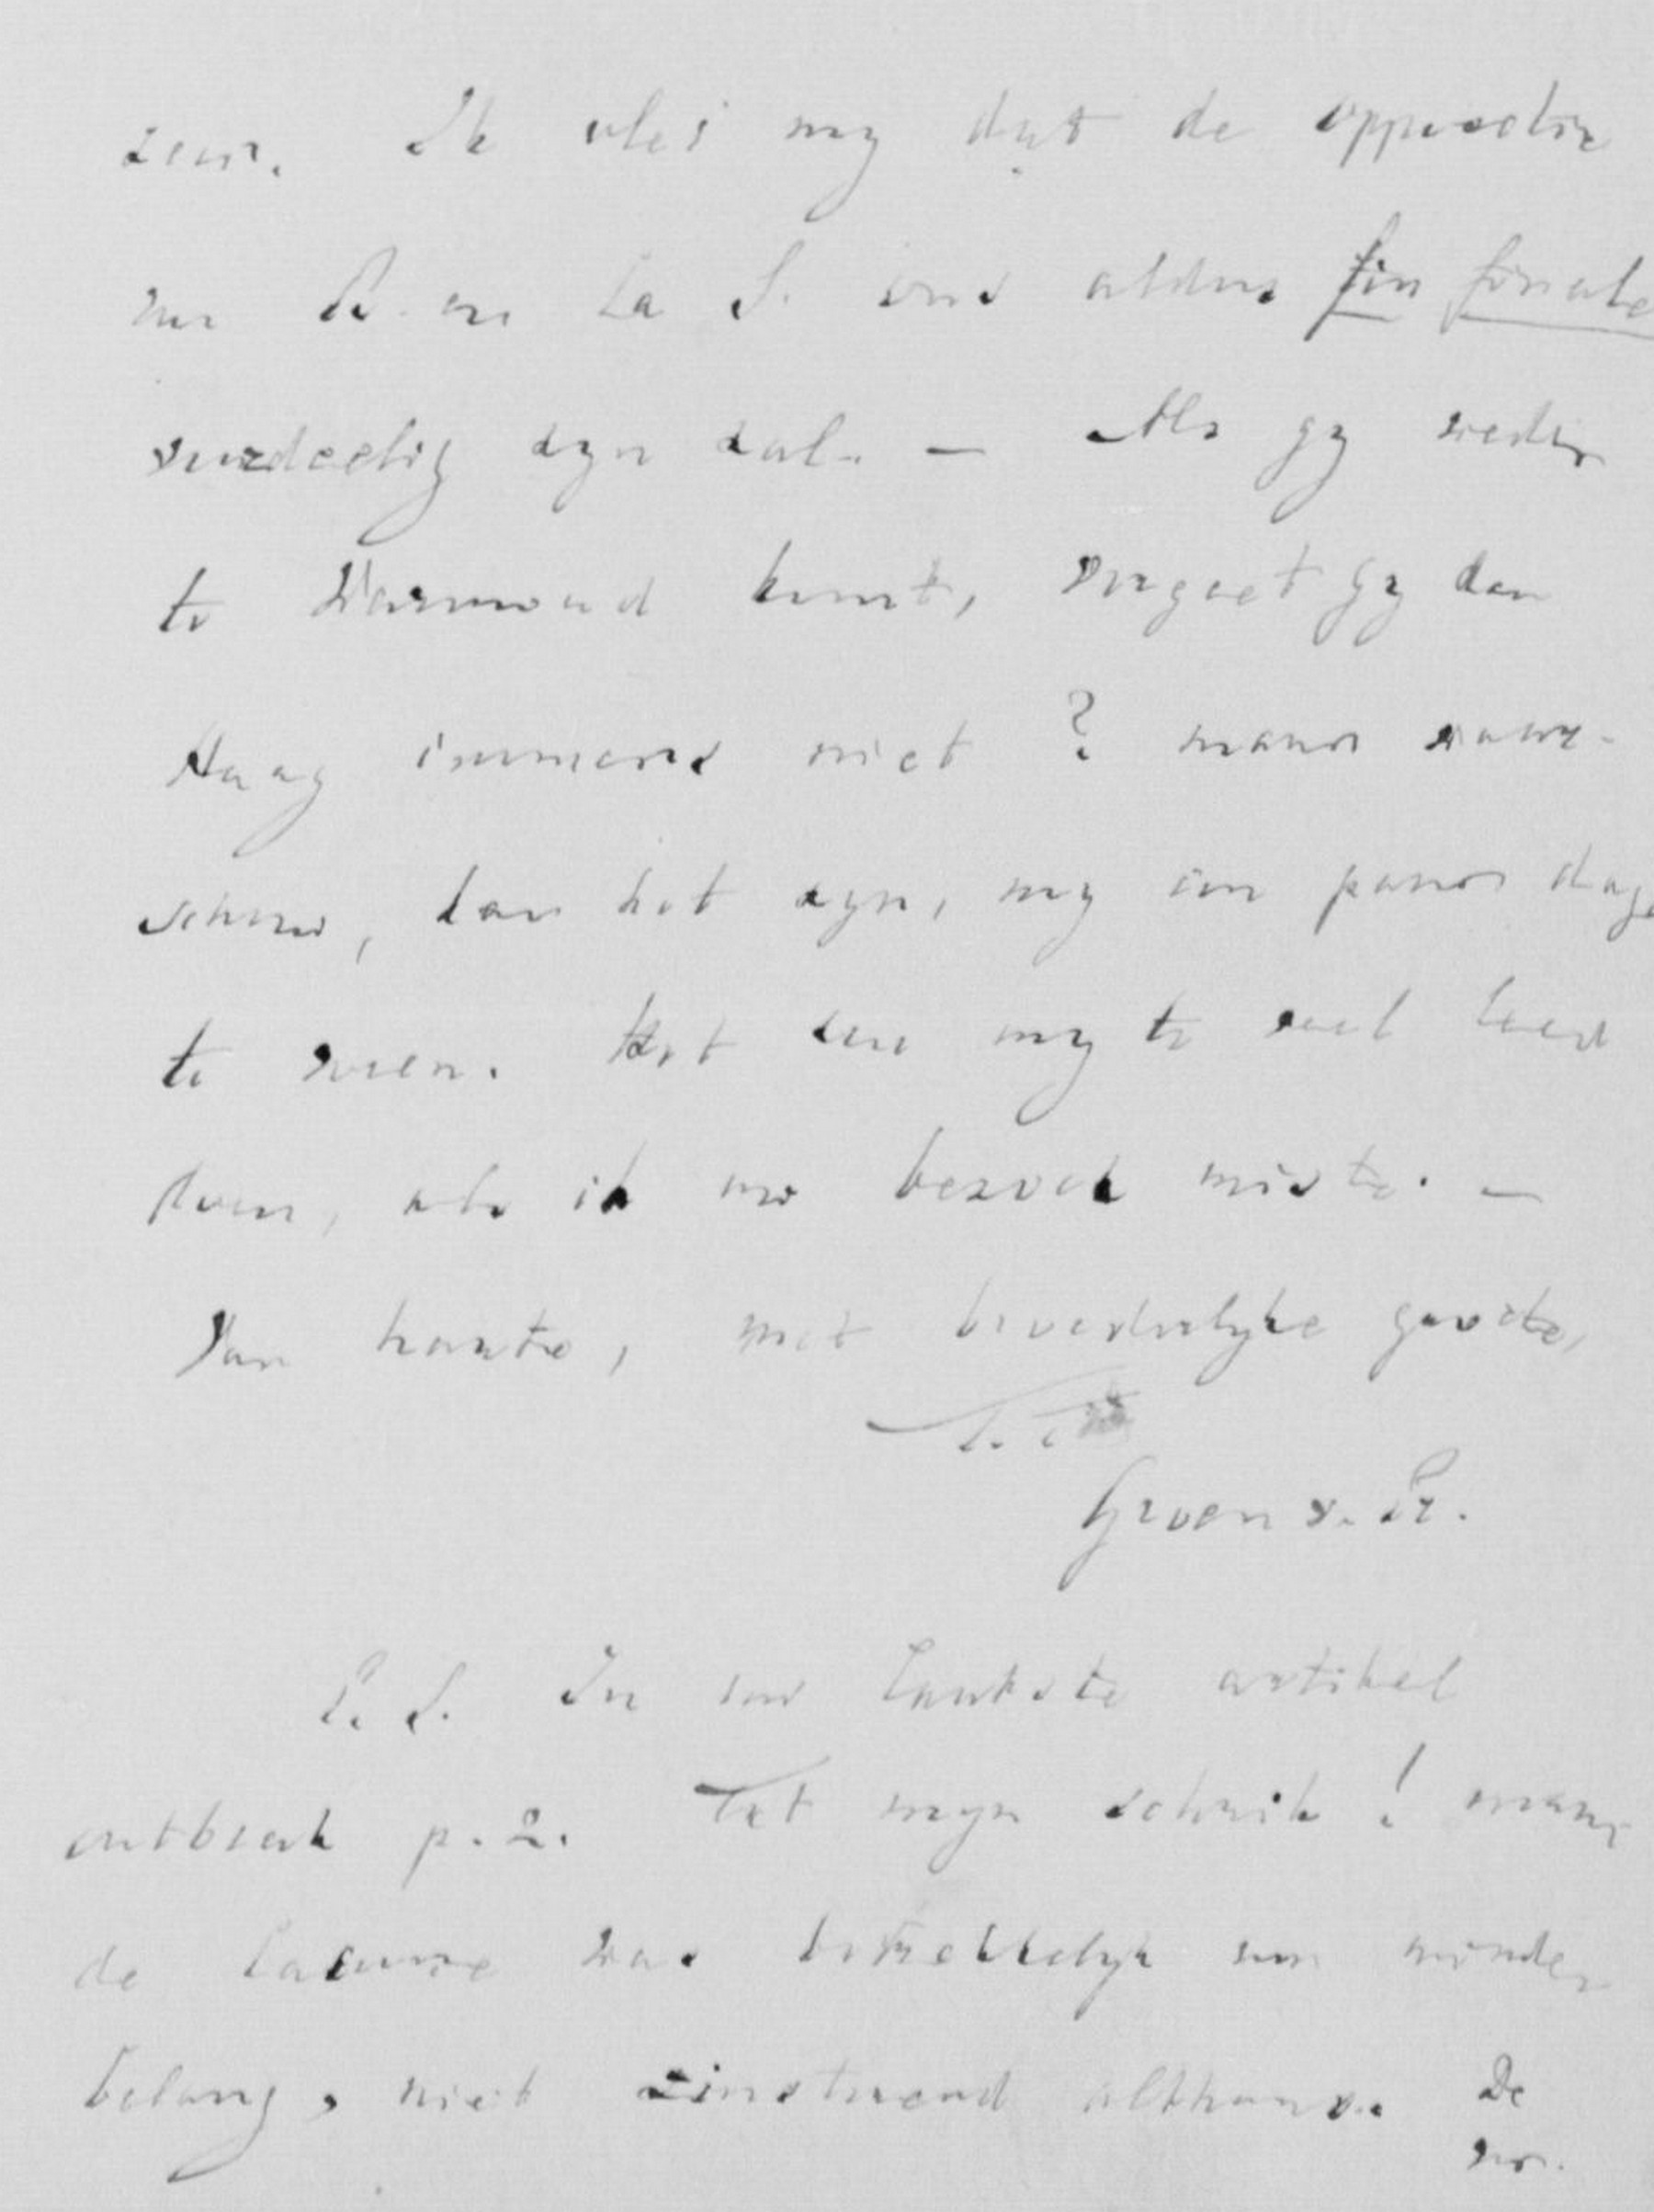 zeer. Ik vlei my dat de oppositie
van B. en La S. ons aldus fin finale
voordeelig zyn zal. — Als gy weder
te Warmond komt, vergeet gy den
Haag immers niet? maar waar-
schuw, kan het zyn, my een paar dagen
te voren. Het zou my te veel leed
doen, als ik uw bezoek miste. —
Van harte, met broederlyke groete,
T. T.
Groen v. Pr.
P. S. In uw laatste artikel
ontbrak p. 2. Tot myn schrik! maar
de lacune was betrekkelyk van minder
belang, niet zinstorend althans. De